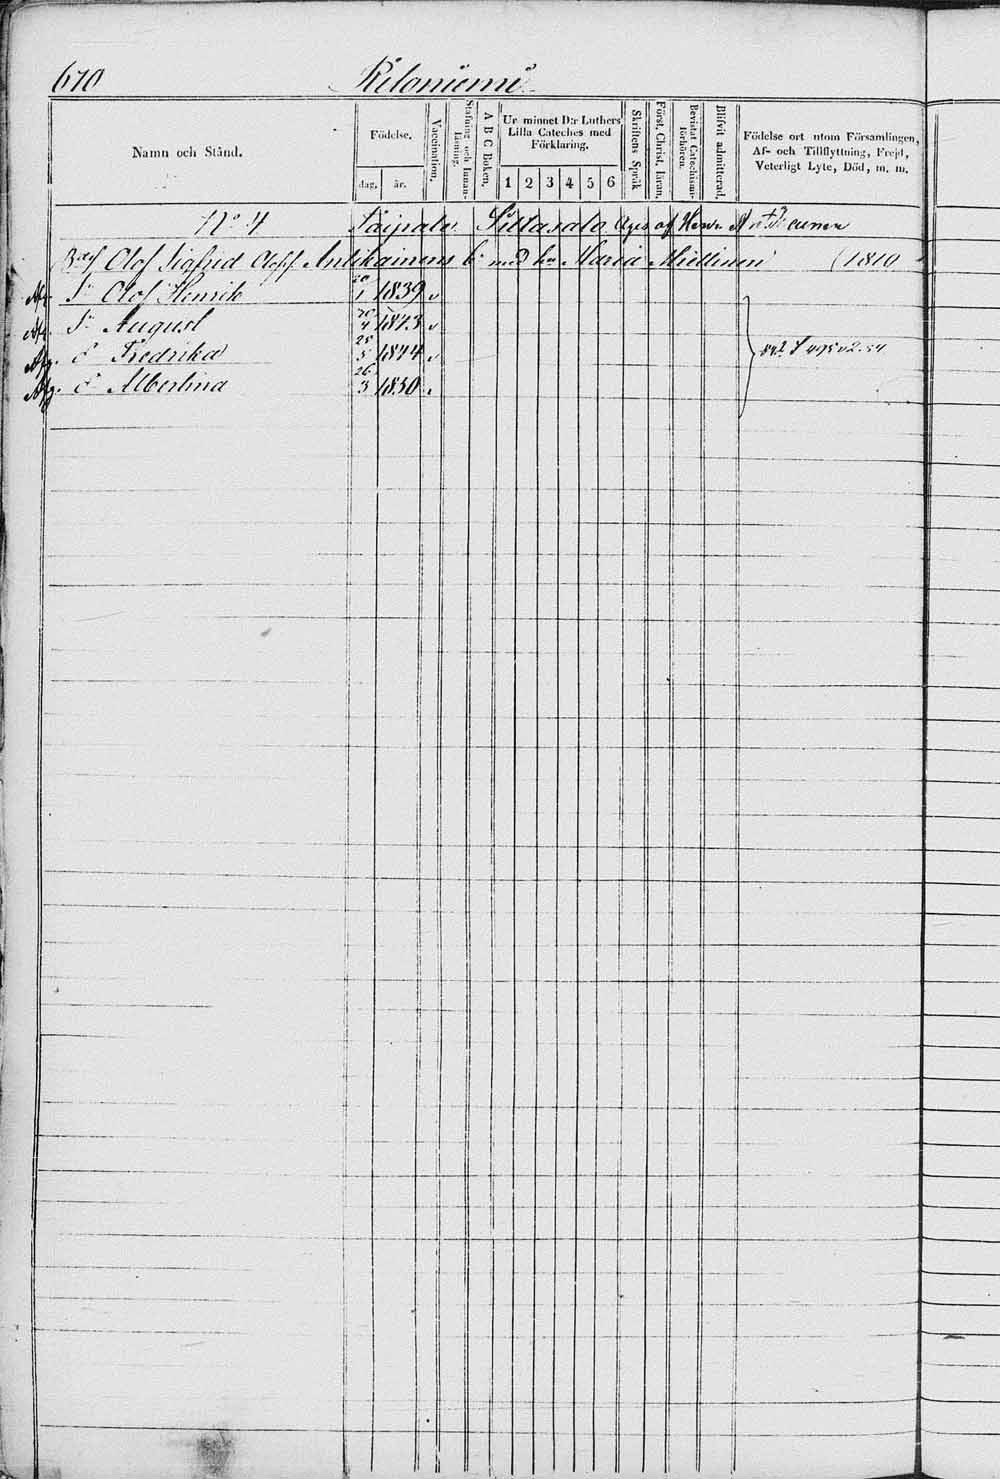 670 Kiloniemi
Namn och Stånd.
Födelse.
dag. år.
Vaccination.
Stafning och Innan-läsning.
A B C Boken.
Ur minnet D:r Luthers
Lilla Cateches med
Förklaring.
1 2 3 4 5 6
Skriftens Språk
Först. Christ. läran.
Bevistat Catechismi-förhören.
Blifvit admitterad.
Födelse ort utom Församlingen,
Af- och Tillflyttning, Frejd,
Veterligt Lyte, Död, m. m.
N:o 4 Saipala Sittasalo Äges af Henr.
Olof Sigfrid Olofss Antikainens med Maria Miettinen (1810
Afg. S. Olof Henrik 20/1 1839 v
Afg. S. August 20/4 1843 v
Afg. d. Fredrika 25/5 1844 v
Afg. d. Albertina 26/3 1850 v